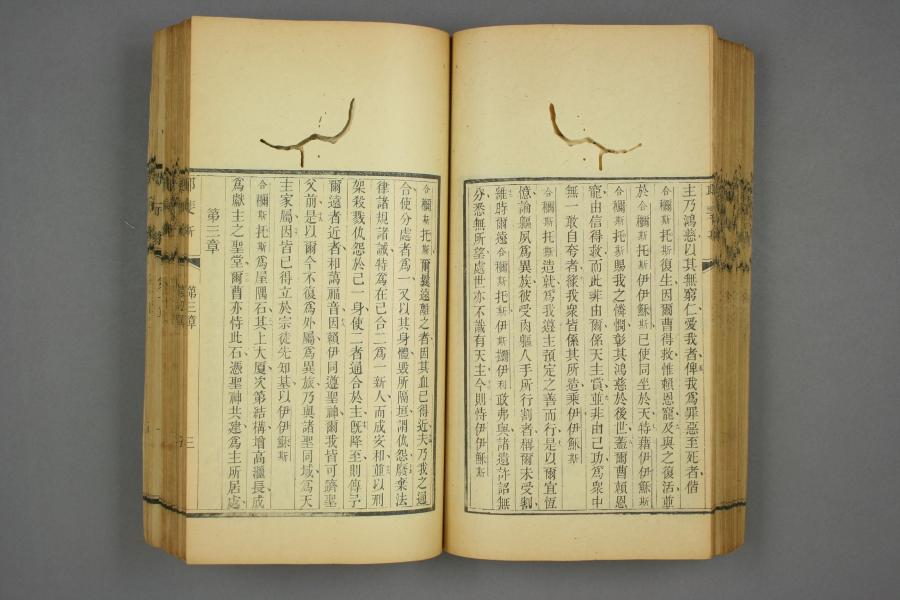 主乃鴻慈以其無窮仁愛我者俾我爲罪惡至死者偕
合穪斯托斯復生因爾曹得救惟賴恩寵及與之復活並
於合穪斯托斯伊伊穌斯已使同坐於天特藉伊伊穌斯
合穪斯托斯賜我之憐憫彰其鴻慈於後世蓋爾曹頼恩
寵由信得救而此非由爾係天主賞並非由己功爲衆中
無一敢自夸者緣我衆皆係其所造乘伊伊穌斯
合穪斯托斯造就爲我遵主預定之善而行是以爾宜恆
憶論軀夙爲異族彼受肉軀人手所行割者稱爾未受割
維時爾遠合穪斯托斯伊斯擳伊利政弗與諸遺許詔無
分悉無所望處世亦不識有天主今則恃伊伊穌斯
合穪斯托斯爾夙遠離之者因其血已得近夫乃我之逥
合使分處者爲一又以其身體毀所隔垣謂仇怨廢棄法
律諸規諸誡特爲在己合二爲一新人而成安和並以刑
架殺戮仇怨於己一身使二者適合於主旣降至則傳予
爾遠者近者和藹福音因頼伊同遵聖神爾我皆可躋聖
父前是以爾今不復爲外屬爲異旅乃與諸聖同域爲天
主家屬因皆已得立於宗徒先知基以伊伊穌斯
合穪斯托斯爲屋隅石其上大厦次第結構增高漚長成
爲獻主之聖堂爾曹亦恃此石憑聖神共建爲主所居處
第三章
第三章
三